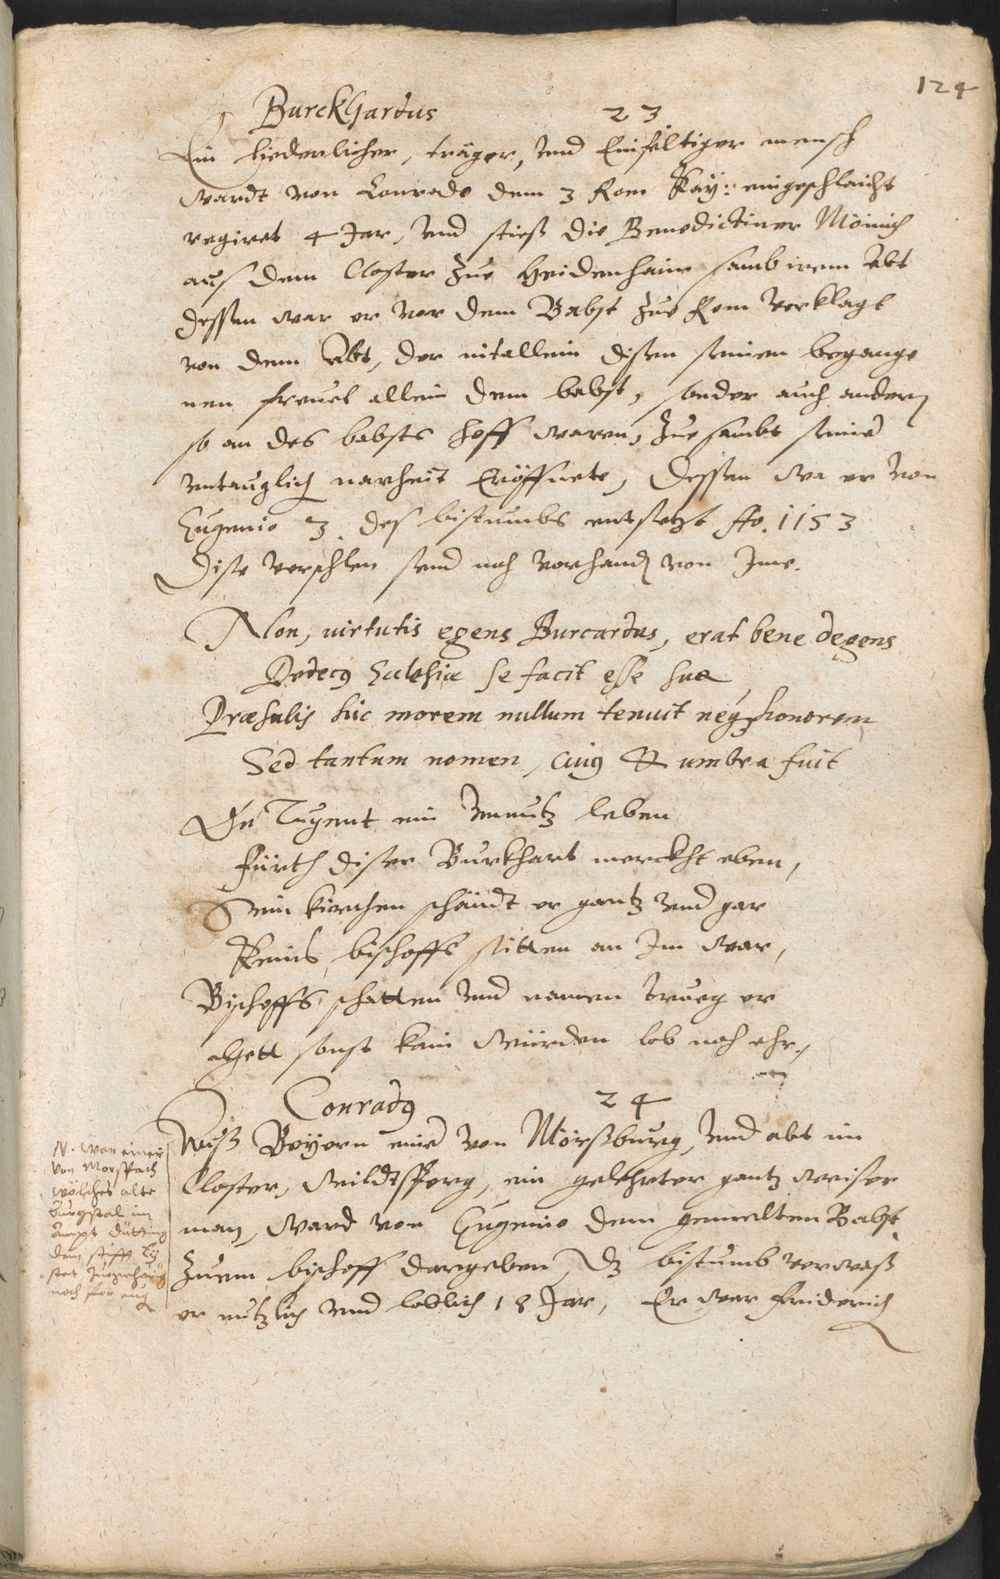 124
BurckHardus 23
Ein liederlicher, träger, vnd Einfältiger mensch
wardt von Conrado dem 3 Rom Kay: eingeschlaicht
regiret 4 Jar, vnd stiess die Benedictiner Mönich
auss dem Closter zue Heidenhaim samb irem Abt
dessen war er vor dem Babst zue Rom verklagt
von dem Abt, der nitallein disen seinen begange
nen freuel allein dem babst, sonder auch andern
so an des babsts hoff waren, zue sambt seiner
vntauglich narheit Eröffnete, dessen wa er von
Eugenio 3. des bistumbs entsetzt Ao. 1153
Dise verschlen seind noch vorhand von Ime.
Non, uirtutis egens Burcardus, erat bene degens
Dedecq Eclesiæ se facit esse suæ
Præsulis hic morem nullum tenuit neqȝ honorem
Sed tantum nomen, cuiq & umbra fuit
On Tugent ein vnnutz leben
Fürth diser Burkhart merckht eben,
Sein kirchen schändt er gantz vnd gar
Keins bischoffs sitten an Im war,
Bischoffs schatten vnd namen trueg er
Hett sonst kain würden lob noch ehr,
Conradq 24
Auss Beyern einer von Mörssburg, vnd abt im
Closter, Wildtssperg, ein gelehrter gantz weiser
man, ward von Eugenio dem gemelten Babst
zuem bischoff dargeben, dz bistumb verwass
er nutzlich vnd loblich 18 Jar, Er war friderich
N. war einer
von Morspach
wölches alte
burgstal im
Ampt
dem stifft Ey
stet zuegehörig
noch